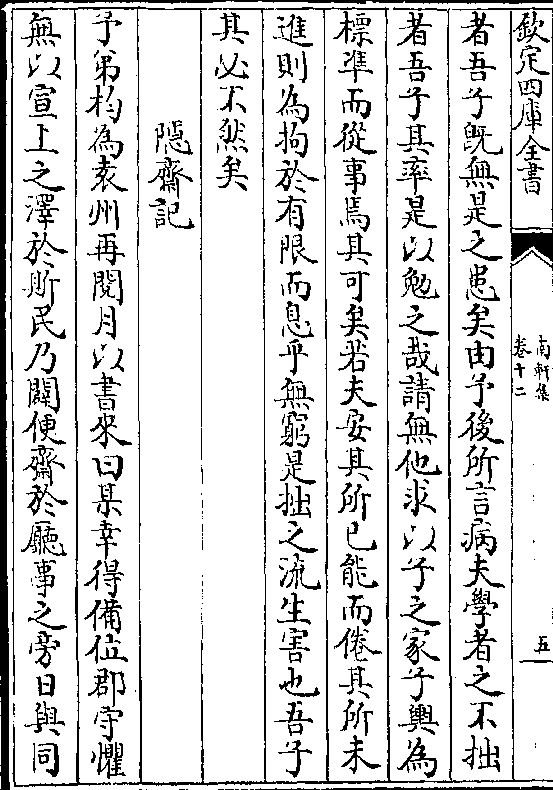 欽定四庫全書
南軒集
卷十二
五
者吾子既無是之患矣由予後所言病夫學者之不拙
者吾子其率是以勉之哉請無他求以子之家子輿為
標準而從事焉其可矣若夫安其所已能而倦其所未
進則為拘於有限而息乎無窮是拙之流生害也吾子
其必不然矣
隠齋記
予弟杓為袁州再閱月以書來曰某幸得備位郡守懼
無以宣上之澤於斯民乃闢便齋於廳事之旁日與同